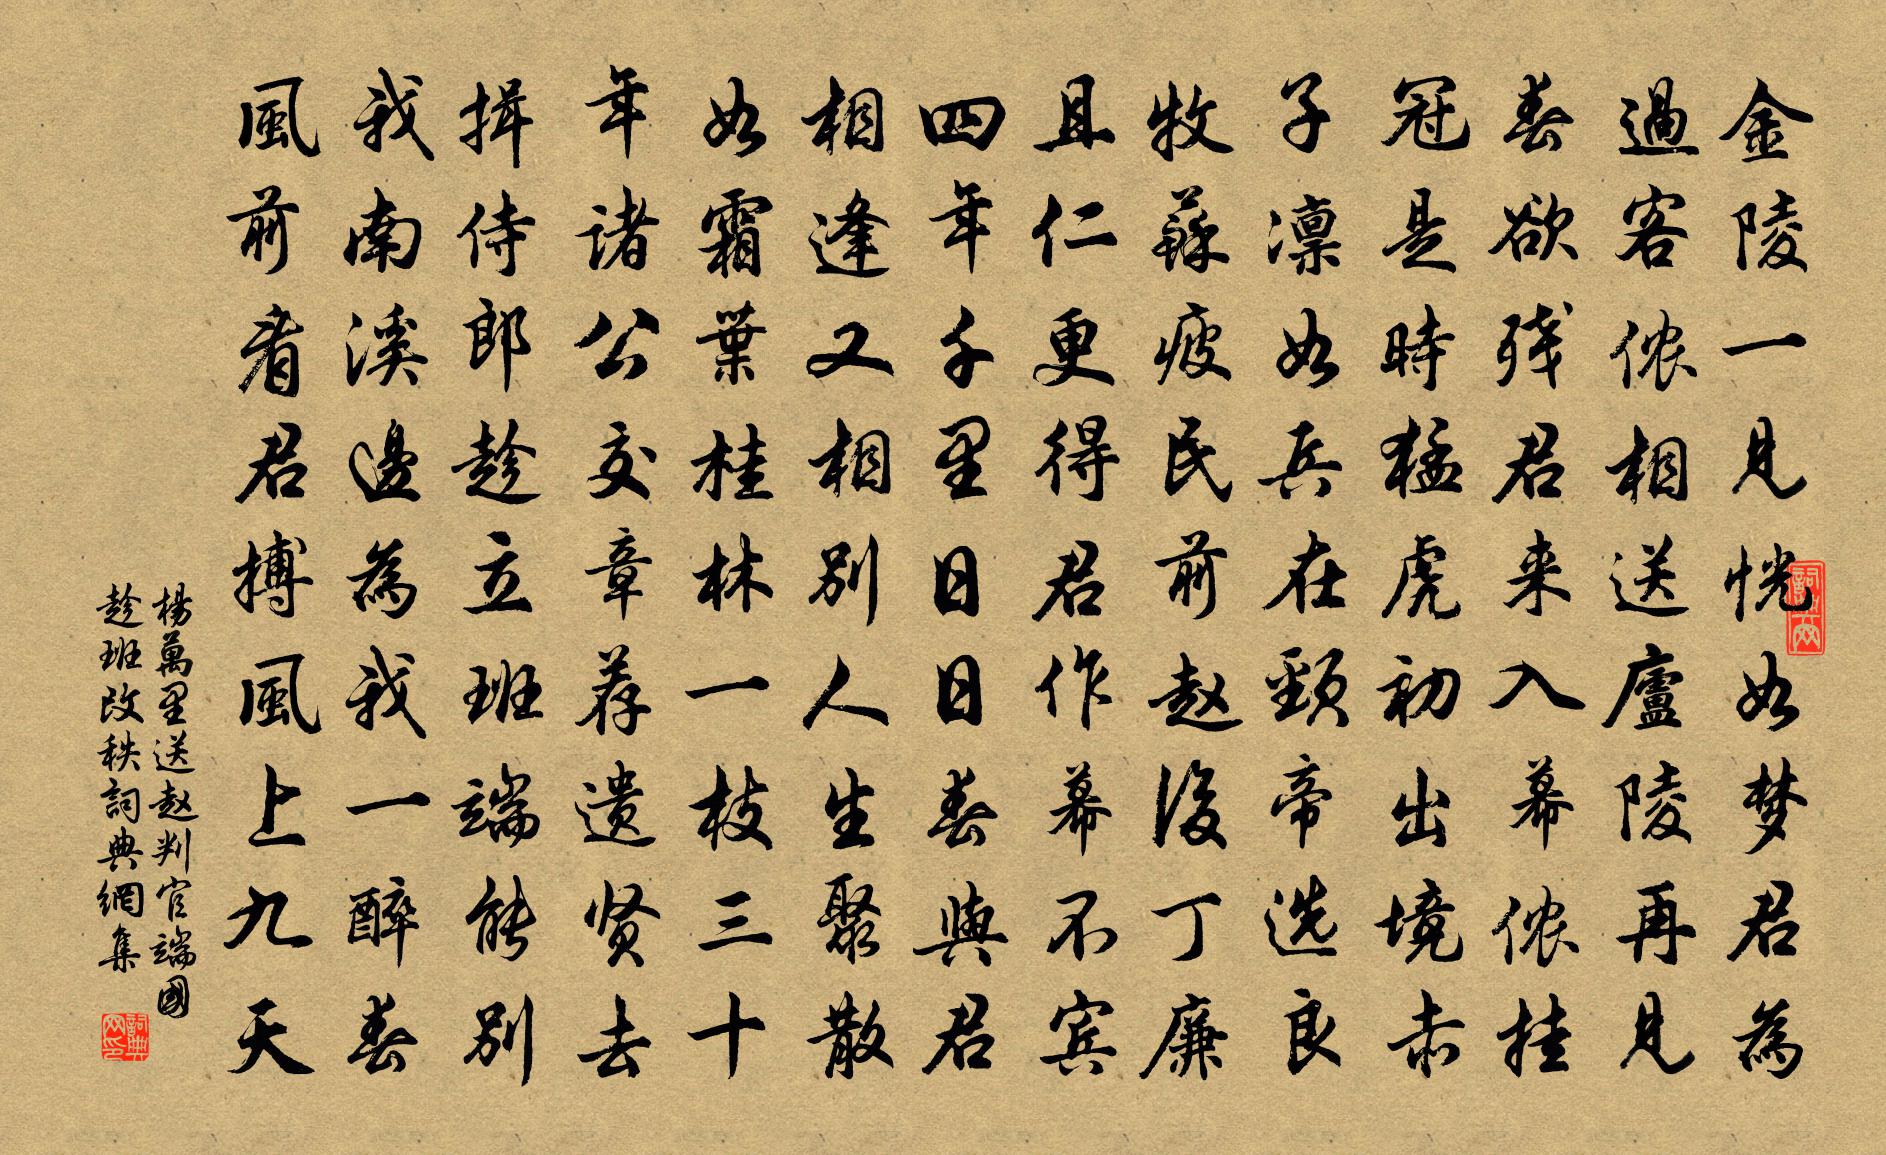 金陵一見恍如梦君為
過客侬相送廬陵再見
春欲残君来入幕侬挂
冠是時猛虎初出境赤
子凛如兵在頸帝选良
牧蘇疲民前赵後丁廉
且仁更得君作幕不宾
四年千里日日春與君
相逢又相別人生聚散
如霜葉桂林一枝三十
年诸公交章荐遗贤去
揖侍郎趁立班端能別
我南溪邊為我一醉春
風前看君搏風上九天
楊萬里送赵判官端國
趁班改秩詞典網集
詞典網
詞典網印